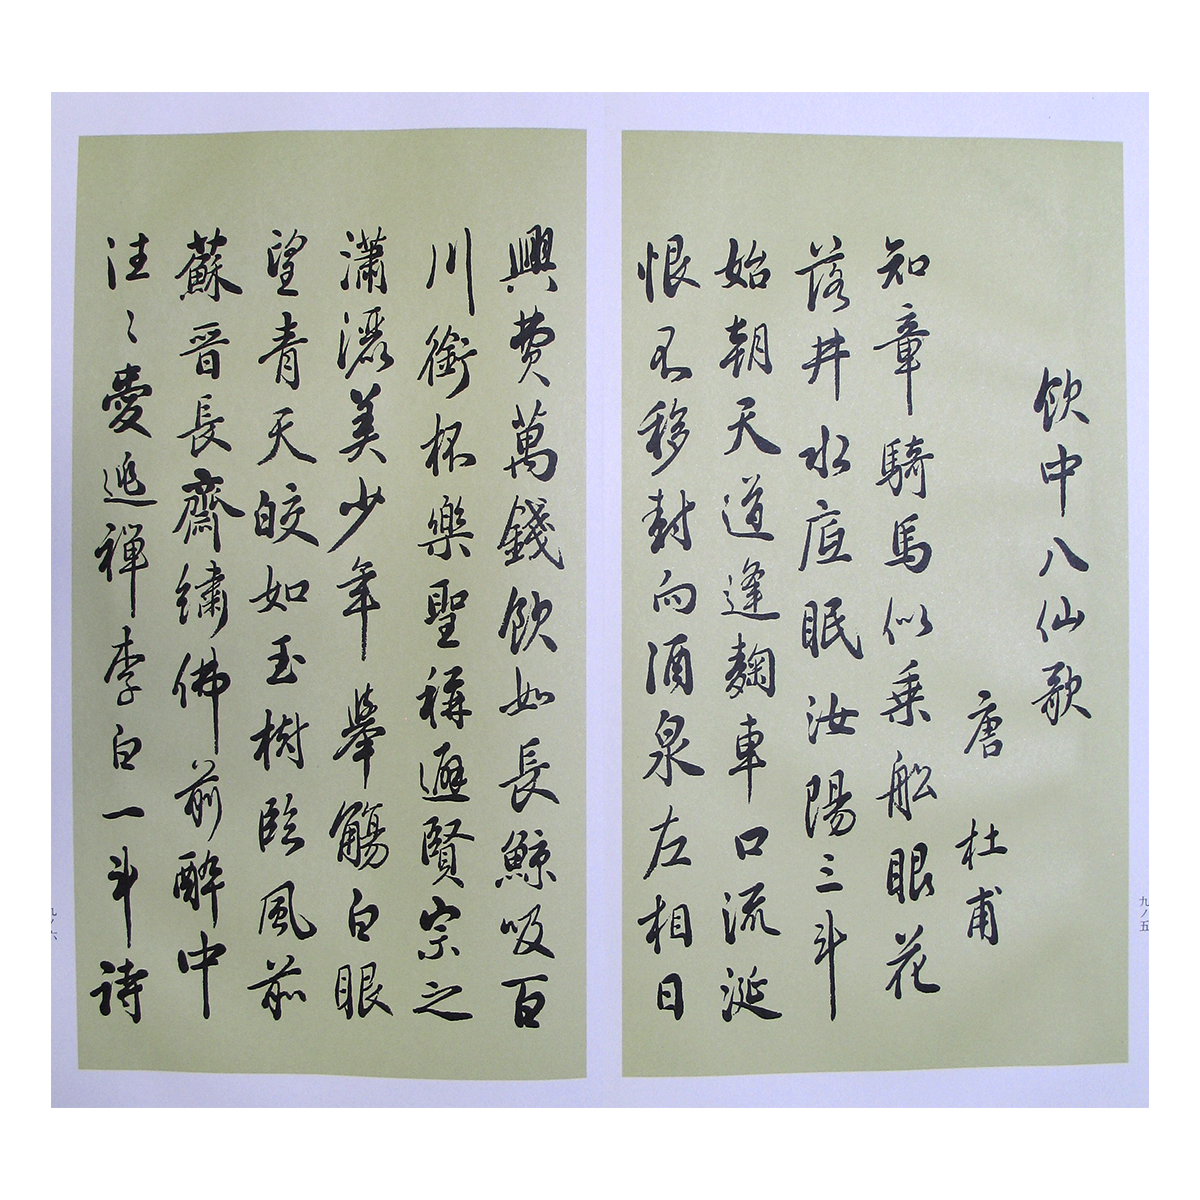 飲中八仙歌
唐 杜甫
知章騎馬似乗船眼花
落井水底眠汝陽三斗
始朝天道逢麴車口流涎
恨不移封向酒泉左相日
九ノ五
興費萬錢飲如長鯨吸百
川銜杯樂聖稱避賢宗之
瀟灑美少年舉觴白眼
望青天皎如玉樹臨風前
蘇晋長齋繡佛前醉中
往々愛逃禅李白一斗詩
九ノ六